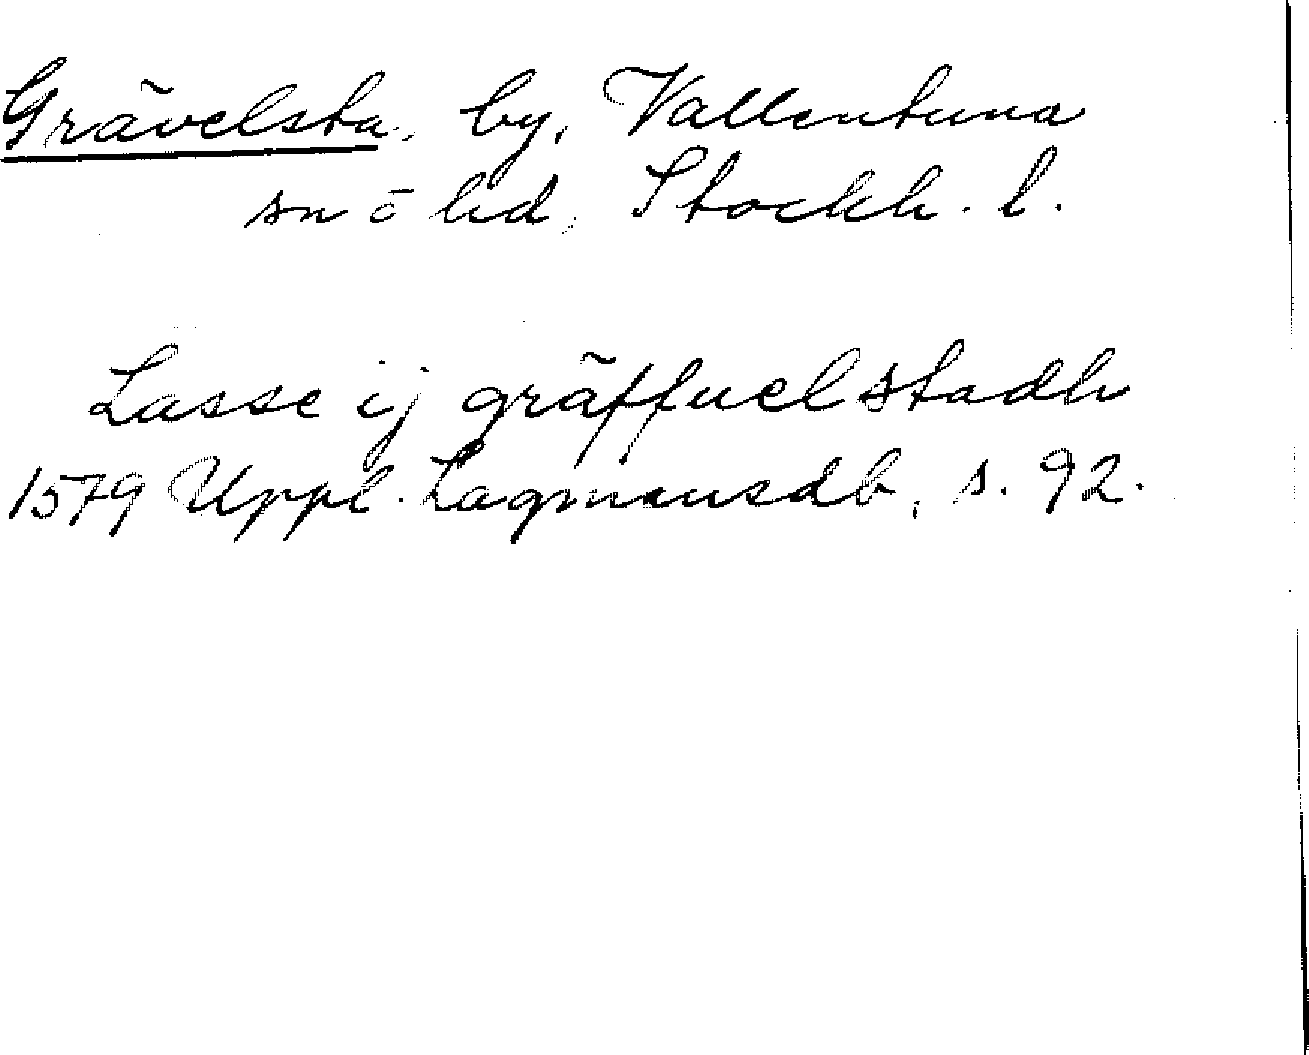 Grävelsta, by, Vallentuna
sn ō hd, Stockh. l.
Lasse ij gräffuelstadh
1579 Uppl. Lagmansdb, s. 92.